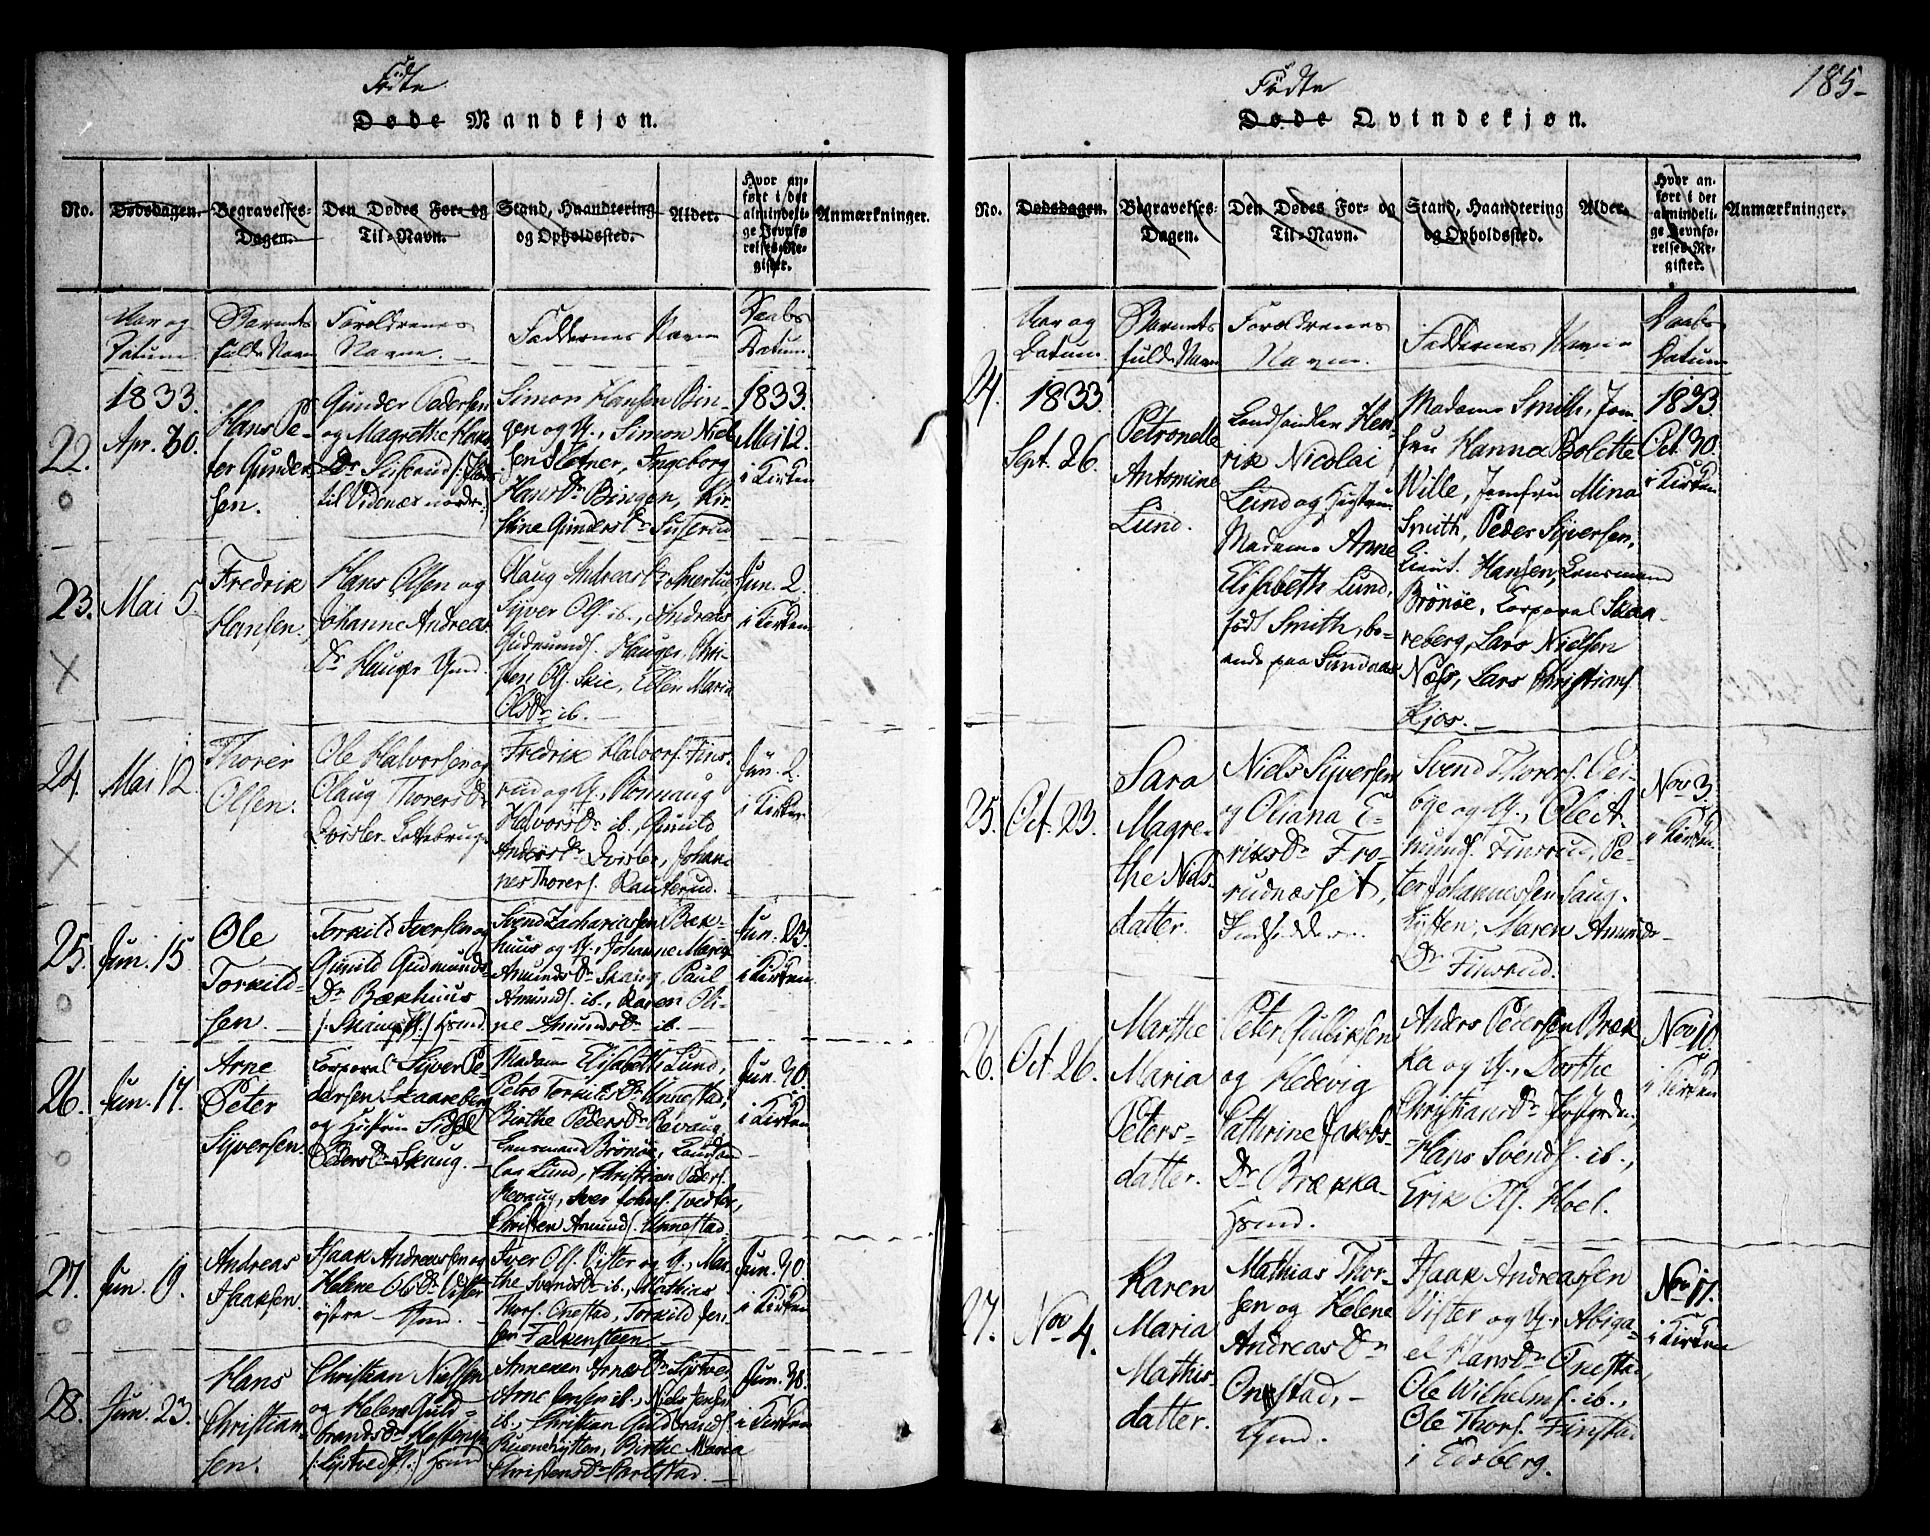 Födte
Døde Mandkjøn.
No. Dødsdagen. Begravelses-Dagen. Den Dødes For- og Til-Navn. Stand, Haandtering og Opholdssted. Alder. Hvor anført i det almindelige Jevnførelses-Register. Anmærkninger.
Aar og Datum. Barnets fulde Navn Forældrenes Navne. Faddernes Navn Daabs Datum.
22.
1833.
Apr. 30.
Hans Pe-
ter Gunder-
sen.
Gunder Pedersen
og Magrethe Hans
Dr
til Vidnæs nordre
Simon Hansen Bin-
gen og H., Simon Niel-
sen Sletner, Ingeborg
Hans Dr Bingen, Kir-
stine Gunders Dr
1833.
Mai 12.
i Kirken
23.
Mai 5
Fredrik
Hansen.
Hans Olsen og
Johanne Andreas
Dr Hauger
Olaug Andreas Dr
Syver Ols. ib., Andreas
Gudmunds. Hauger, Chri-
sten Ols. Skie, Ellen Maria
Ols Dr ib.
Jun. 2.
i Kirken
24.
Mai 12.
Thorer
Olsen.
Ole Halvorsen og
Olaug Thorers Dr
Fredrik Halvors. Fins-
rud og H., Rønnaug
Halvors Dr ib., Gunild
Anders Dr Dvisler, Johan-
nes Thorers. Rauterud.
Jun. 2.
i Kirken
25.
Jun. 15
Ole
Torkild-
sen.
Torkild Iversen og
Gunild Gudmunds-
Dr Bækhuus
Svend Zachariassen Bæk-
huus og H., Johanne Maria
Amunds Dr Skaug, Paul
Amunds. ib., Karen Oli-
ne Amunds Dr ib.
Jun. 23.
i Kirken
26.
Jun. 17.
Arne
Peter
Syversen.
Corporal Syver Pe-
dersen Skaareberg
og Hustru
Peders Dr Skaug.
Madam Elisabeth Lund,
Petro Torkilds Dr Unnestad,
Birthe Peders Dr Revaug,
Lensmand Brønøe,
Lund, Christian Peders.
Revaug, Iver Johns. Tvedter,
Christen Amunds. Unnestad.
Jun. 30.
i Kirken
27.
Jun. 9.
Andreas
Isaaksen
Isaak Andreassen og
Helene Ols Dr Vister
østre
Iver Ols. Vister og H., Mar-
the Svends Dr ib., Mathias
Thors. Onestad, Torkild Jen-
sen Falkensteen
Jun. 30
i Kirken
28.
Jun. 23.
Hans
Christian-
sen.
Christian Nielsen
og Helene Guld-
brands Dr
Annexen Arnes Dr Lystved,
Arne Jensen ib., Niels Jensen
ib., Christian Guldbrands.
Ruenehytten, Birthe Maria
Christens Dr Carlstad.
Jun. 30.
i Kirken
185-
Födte
Døde Qvindekjøn.
No. Dødsdagen. Begravelses-Dagen. Den Dødes For- og Til-Navn. Stand, Haandtering og Opholdssted. Alder. Hvor anført i det almindelige Jevnførelses-Register. Anmærkninger.
Aar og Datum. Barnets fulde Navn Forældrenes Navn. Faddernes Navn Daabs Datum
24.
1833.
Sept. 26.
Petronelle
Antomine
Lund.
Landhandler Hen-
rik Nicolai
Lund og Hustru
Madame Anne
Elisabeth Lund,
fød Smith, bo-
ende paa Sundaas
Madame Smith, Jom-
fru Hanna Bolette
Wille, Jomfru Mina
Smith, Peder Syversen,
Lieut. Hansen, Lensmand
Brønøe, Corporal Skaa-
reberg, Lars Nielsen
Næss, Lars Christians.
Kjos.
1833.
Oct. 30.
i Kirken
25.
Oct. 23.
Sara
Magre-
the Niels-
datter.
Niels Syversen
og Oliana E-
riks Dr Fro-
rudnæsset,
Indsidder.
Svend Thorers. Vei-
bye og H., Ole A-
munds. Finsrud, Pe-
ter Johannessen Haug-
hytten, Maren Amunds-
Dr Finsrud.
Nov. 3.
i Kirken
26.
Oct. 26.
Marthe
Maria
Peters-
datter.
Peter Gulliksen
og Hedevig
Cathrine Jakobs-
Dr Brækka-
Anders Pedersen Bræk-
ka og H., Dorthe
Christians Dr
Hans Svends. ib.,
Erik Ols. Hoel.
Nov. 10.
i Kirken
27.
Nov. 4.
Karen
Maria
Mathis-
datter.
Mathias Thor-
sen og Helene
Andreas Dr
Onestad,
Isaak Andreassen
Vister og H., Abiga-
el Hans Dr Onestad,
Ole Wilhelms. ib.,
Ole Thors. Finstad
i Eidsberg.
Nov. 17.
i Kirken